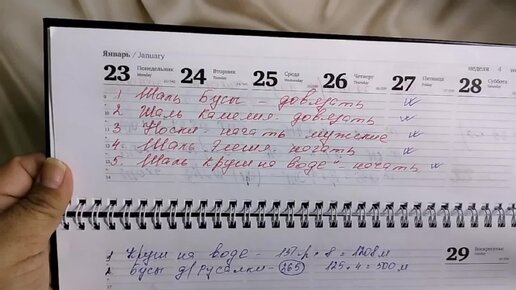 Январь / January
неделя 4
23 Понедельник Monday 24 Вторник Tuesday 25 Среда Wednesday 26 Четверг Thursday 27 Пятница Friday 28 Суббота
1 Шаль Бусы - довязать
2 Шаль Камелия - довязать
3 Носки - начать мужские
4. Шаль - начать
5. Шаль "Круги на воде" - начать
29 Воскресенье
1 Круги на воде - 151 р * 8 = 1208 м
2 Бусы д/русалки - 265 125 * 4 = 500 м